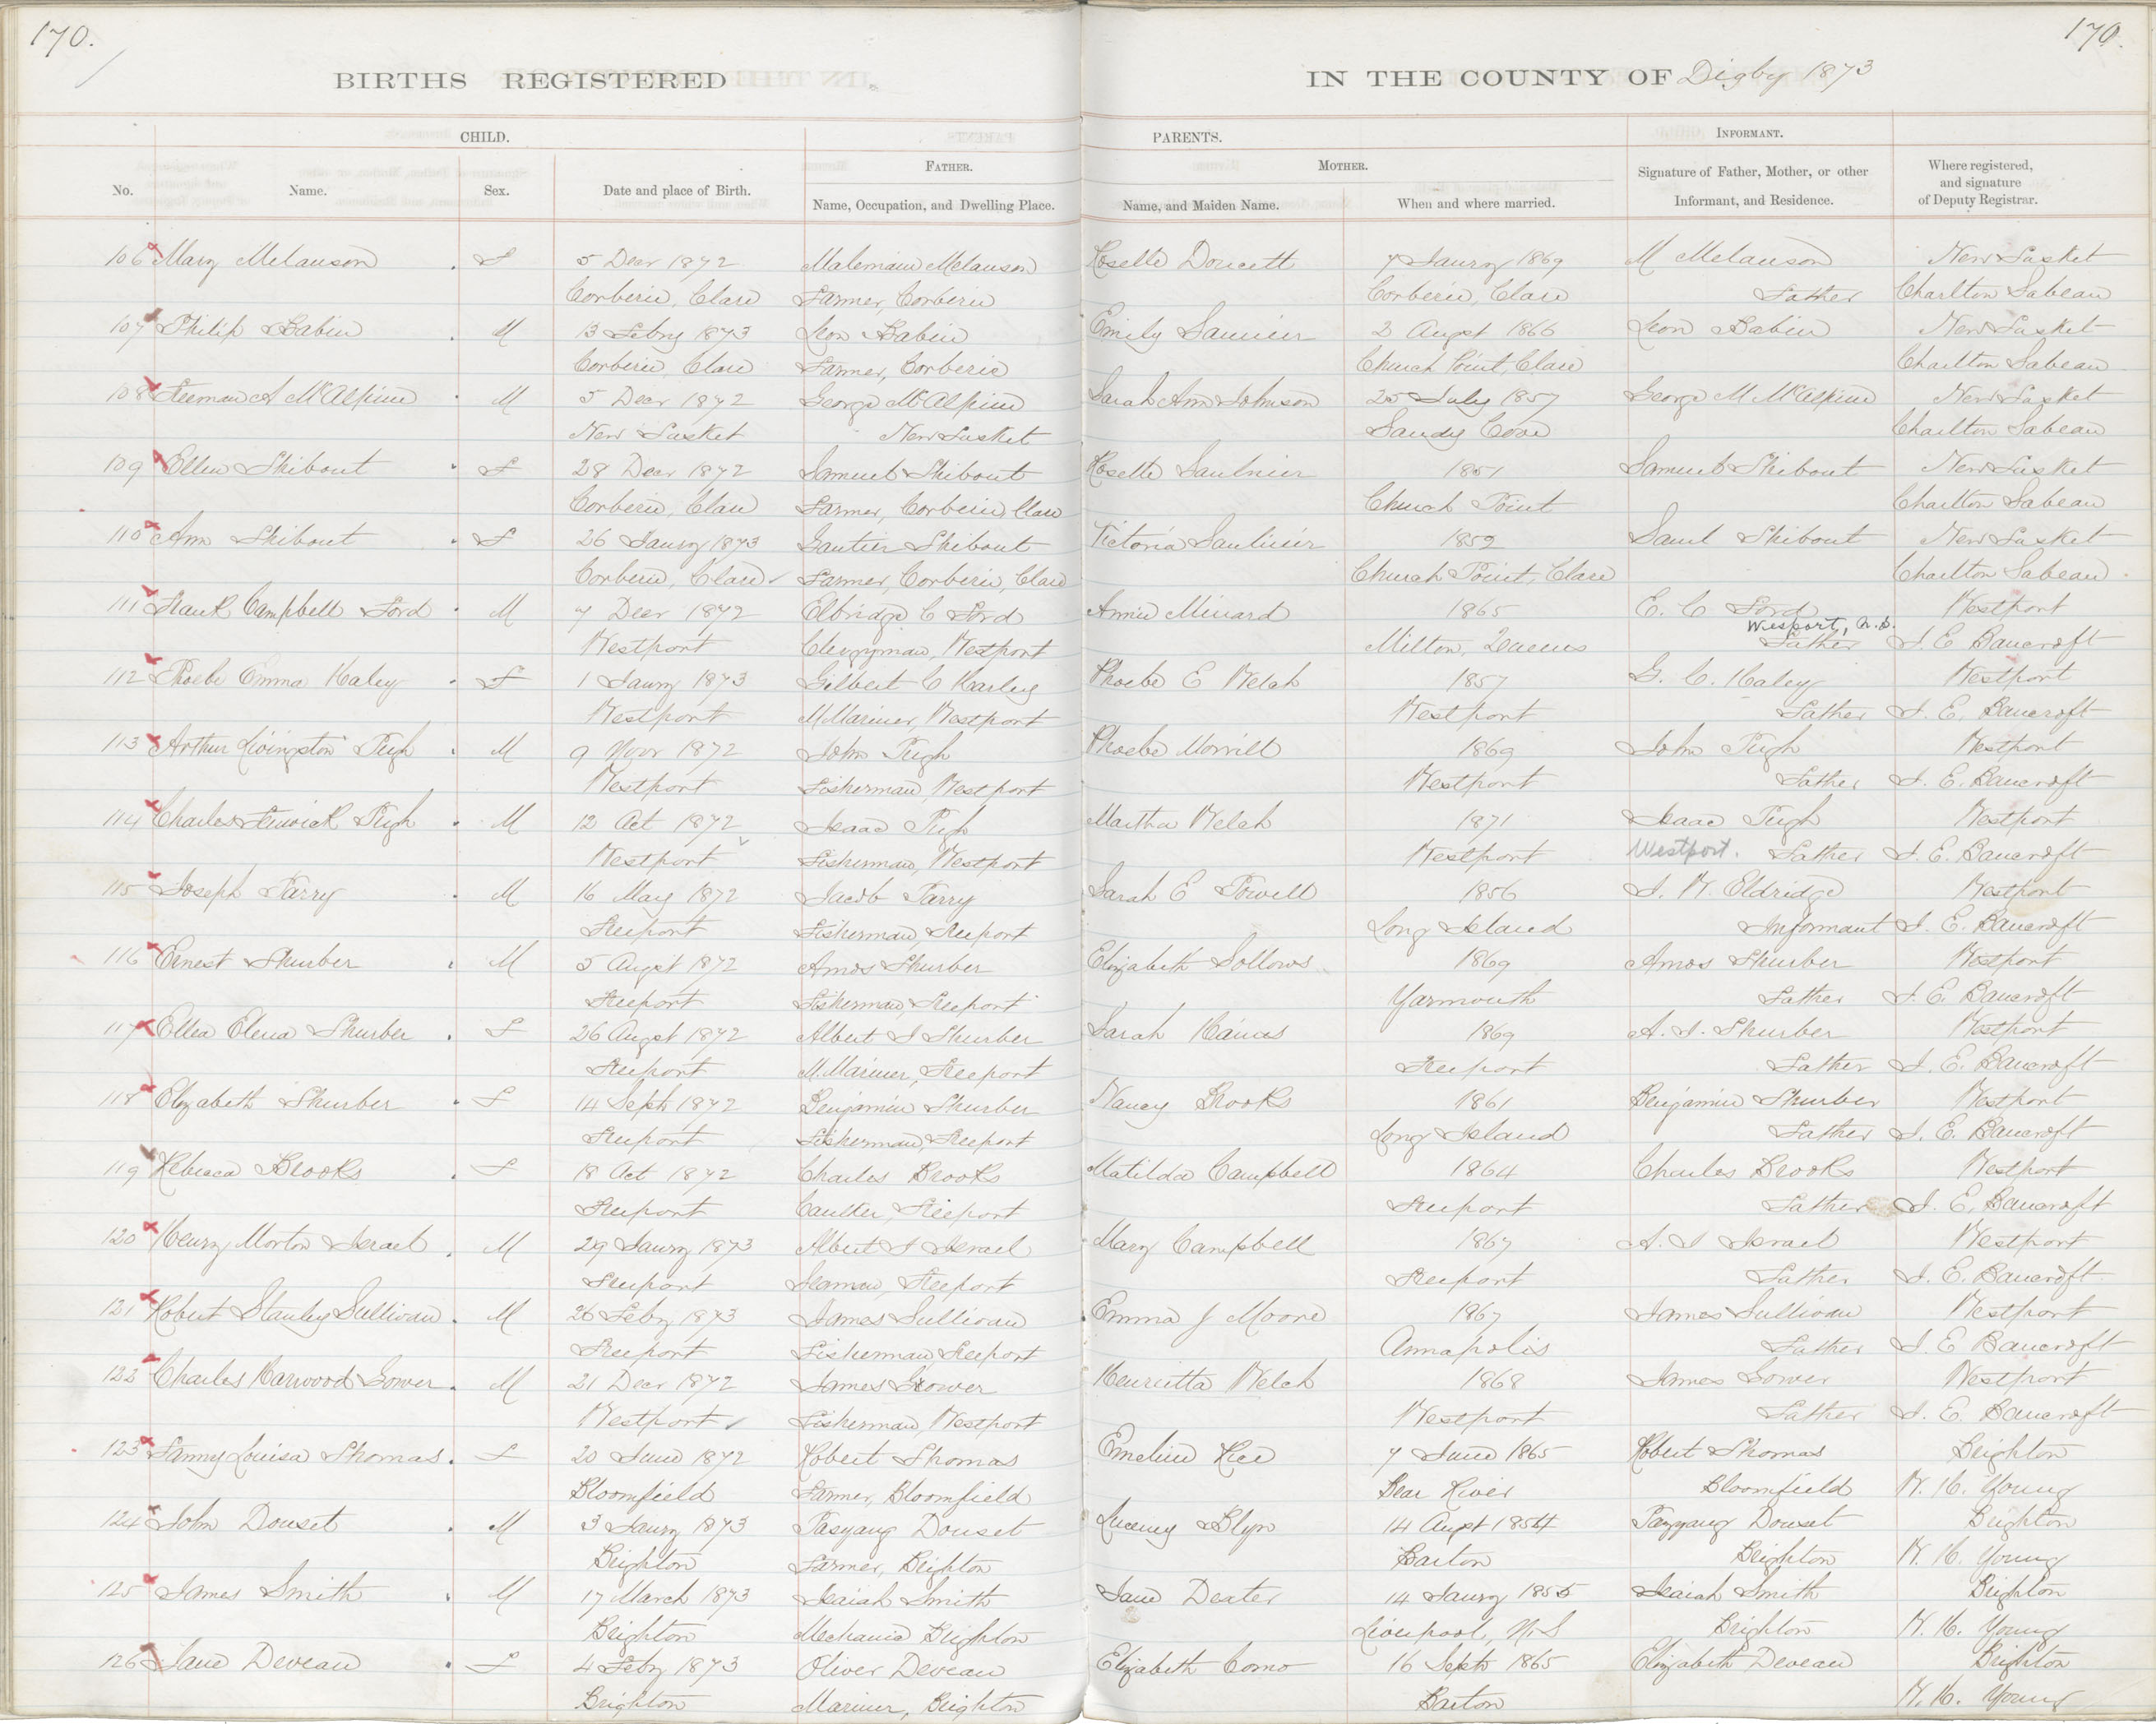 170.
170.
BIRTHS REGISTERED
IN THE COUNTY OF Digby 1873
CHILD.
PARENTS.
INFORMANT.
No.
Name.
Sex.
Date and place of Birth.
FATHER.
Name, Occupation, and Dwelling Place.
MOTHER.
Name, and Maiden Name.
When and where married.
Signature of Father, Mother, or other Informant, and Residence.
Where registered, and signature of Deputy Registrar.
106 Mary Melanson F 5 Decr 1872 Melanson Rosella Doucett 7 Janry 1869 M Melanson New Tusket
Corberie, Clare Farmer, Corberie Corberie, Clare Father Charlton Sabean
107 Philip Babin M 13 Febry 1873 Leon Babin Emily Saunier 2 Augst 1866 Leon Babin New Tusket
Corberie, Clare Farmer, Corberie Church Point, Clare Charlton Sabean
108 Freeman A McAlpine M 5 Decr 1872 George McAlpine Sarah Ann Johnson 25 July 1857 George M McAlpine New Tusket
New Tusket New Tusket Sandy Cove Charlton Sabean
109 Ellen Thibout F 28 Decr 1872 Samuel Thibout Rosella Saulnier 1851 Samuel Thibout New Tusket
Corberie, Clare Farmer, Corberie, Clare Church Point Charlton Sabean
110 Ann Thibout F 26 Janry 1873 Gautier Thibout Victoria Saulinier 1859 Saml Thibout New Tusket
Corberie, Clare Farmer, Corberie, Clare Church Point, Clare Charlton Sabean
111 Frank Campbell Ford M 7 Decr 1872 Elbridge C Ford Annie Minard 1865 E. C Ford Westport
Wesport, N.S.
Westport Clergyman, Westport Milton, Queens Father J. E Bancroft
112 Phoebe Emma Haley F 1 Janry 1873 Gilbert C Harley Phoebe E Welch 1857 G. C. Haley Westport
Westport M Mariner, Westport Westport Father J. E. Bancroft
113 Arthur Livingston Pugh M 9 Novr 1872 John Pugh Phoebe Morrill 1869 John Pugh Westport
Westport Fisherman, Westport Westport Father J. E. Bancroft
114 Charles Fenwick Pugh M 12 Oct 1872 Isaac Pugh Martha Welch 1871 Isaac Pugh Westport
Westport Fisherman, Westport Westport Westport. Father J. E. Bancroft
115 Joseph Tarry M 16 May 1872 Jacob Tarry Sarah E Powell 1856 J. W. Eldridge Westport
Freeport Fisherman, Freeport Long Island Informant J. E. Bancroft
116 Ernest Thurber M 5 Augst 1872 Amos Thurber Elizabeth Sollows 1869 Amos Thurber Westport
Freeport Fisherman, Freeport Yarmouth Father J. E. Bancroft
117 Ellea Elena Thurber F 26 Augst 1872 Albert J Thurber Sarah Haines 1869 A. J. Thurber Westport
Freeport M. Mariner, Freeport Freeport Father J. E. Bancroft
118 Elizabeth Thurber F 14 Septr 1872 Benjamin Thurber Nancy Brooks 1861 Benjamin Thurber Westport
Freeport Fisherman, Freeport Long Island Father J. E. Bancroft
119 Rebecca Brooks F 18 Oct 1872 Charles Brooks Matilda Campbell 1864 Charles Brooks Westport
Freeport Caulker, Freeport Freeport Father J. E. Bancroft
120 Henry Morton Israel M 29 Janry 1873 Albert J Israel Mary Campbell 1867 A. J Israel Westport
Freeport Seaman, Freeport Freeport Father J. E. Bancroft
121 Robert Stanley Sullivan M 26 Febry 1873 James Sullivan Emma J Moore 1867 James Sullivan Westport
Freeport Fisherman Freeport Annapolis Father J. E Bancroft
122 Charles Harwood Gower M 21 Decr 1872 James Gower Henrietta Welch 1868 James Gower Westport
Westport Fisherman, Westport Westport Father J. E. Bancroft
123 Fanny Louisa Thomas F 20 June 1872 Robert Thomas Emeline Rice 7 June 1865 Robert Thomas Brighton
Bloomfield Farmer, Bloomfield Bear River Bloomfield W. H. Young
124 John Douset M 3 Janry 1873 Pasyang Douset Blyn 14 Augst 1854 Douset Brighton
Brighton Farmer, Brighton Barton Brighton W. H. Young
125 James Smith M 17 March 1873 Isaiah Smith Jane Dexter 14 Janry 1855 Isaiah Smith Brighton
Brighton Mechanic Brighton Liverpool, N.S Brighton W. H. Young
126 Jane Deveau F 4 Febry 1873 Oliver Deveau Elizabeth Como 16 Septr 1865 Elizabeth Deveau Brighton
Brighton Mariner, Brighton Barton W. H. Young